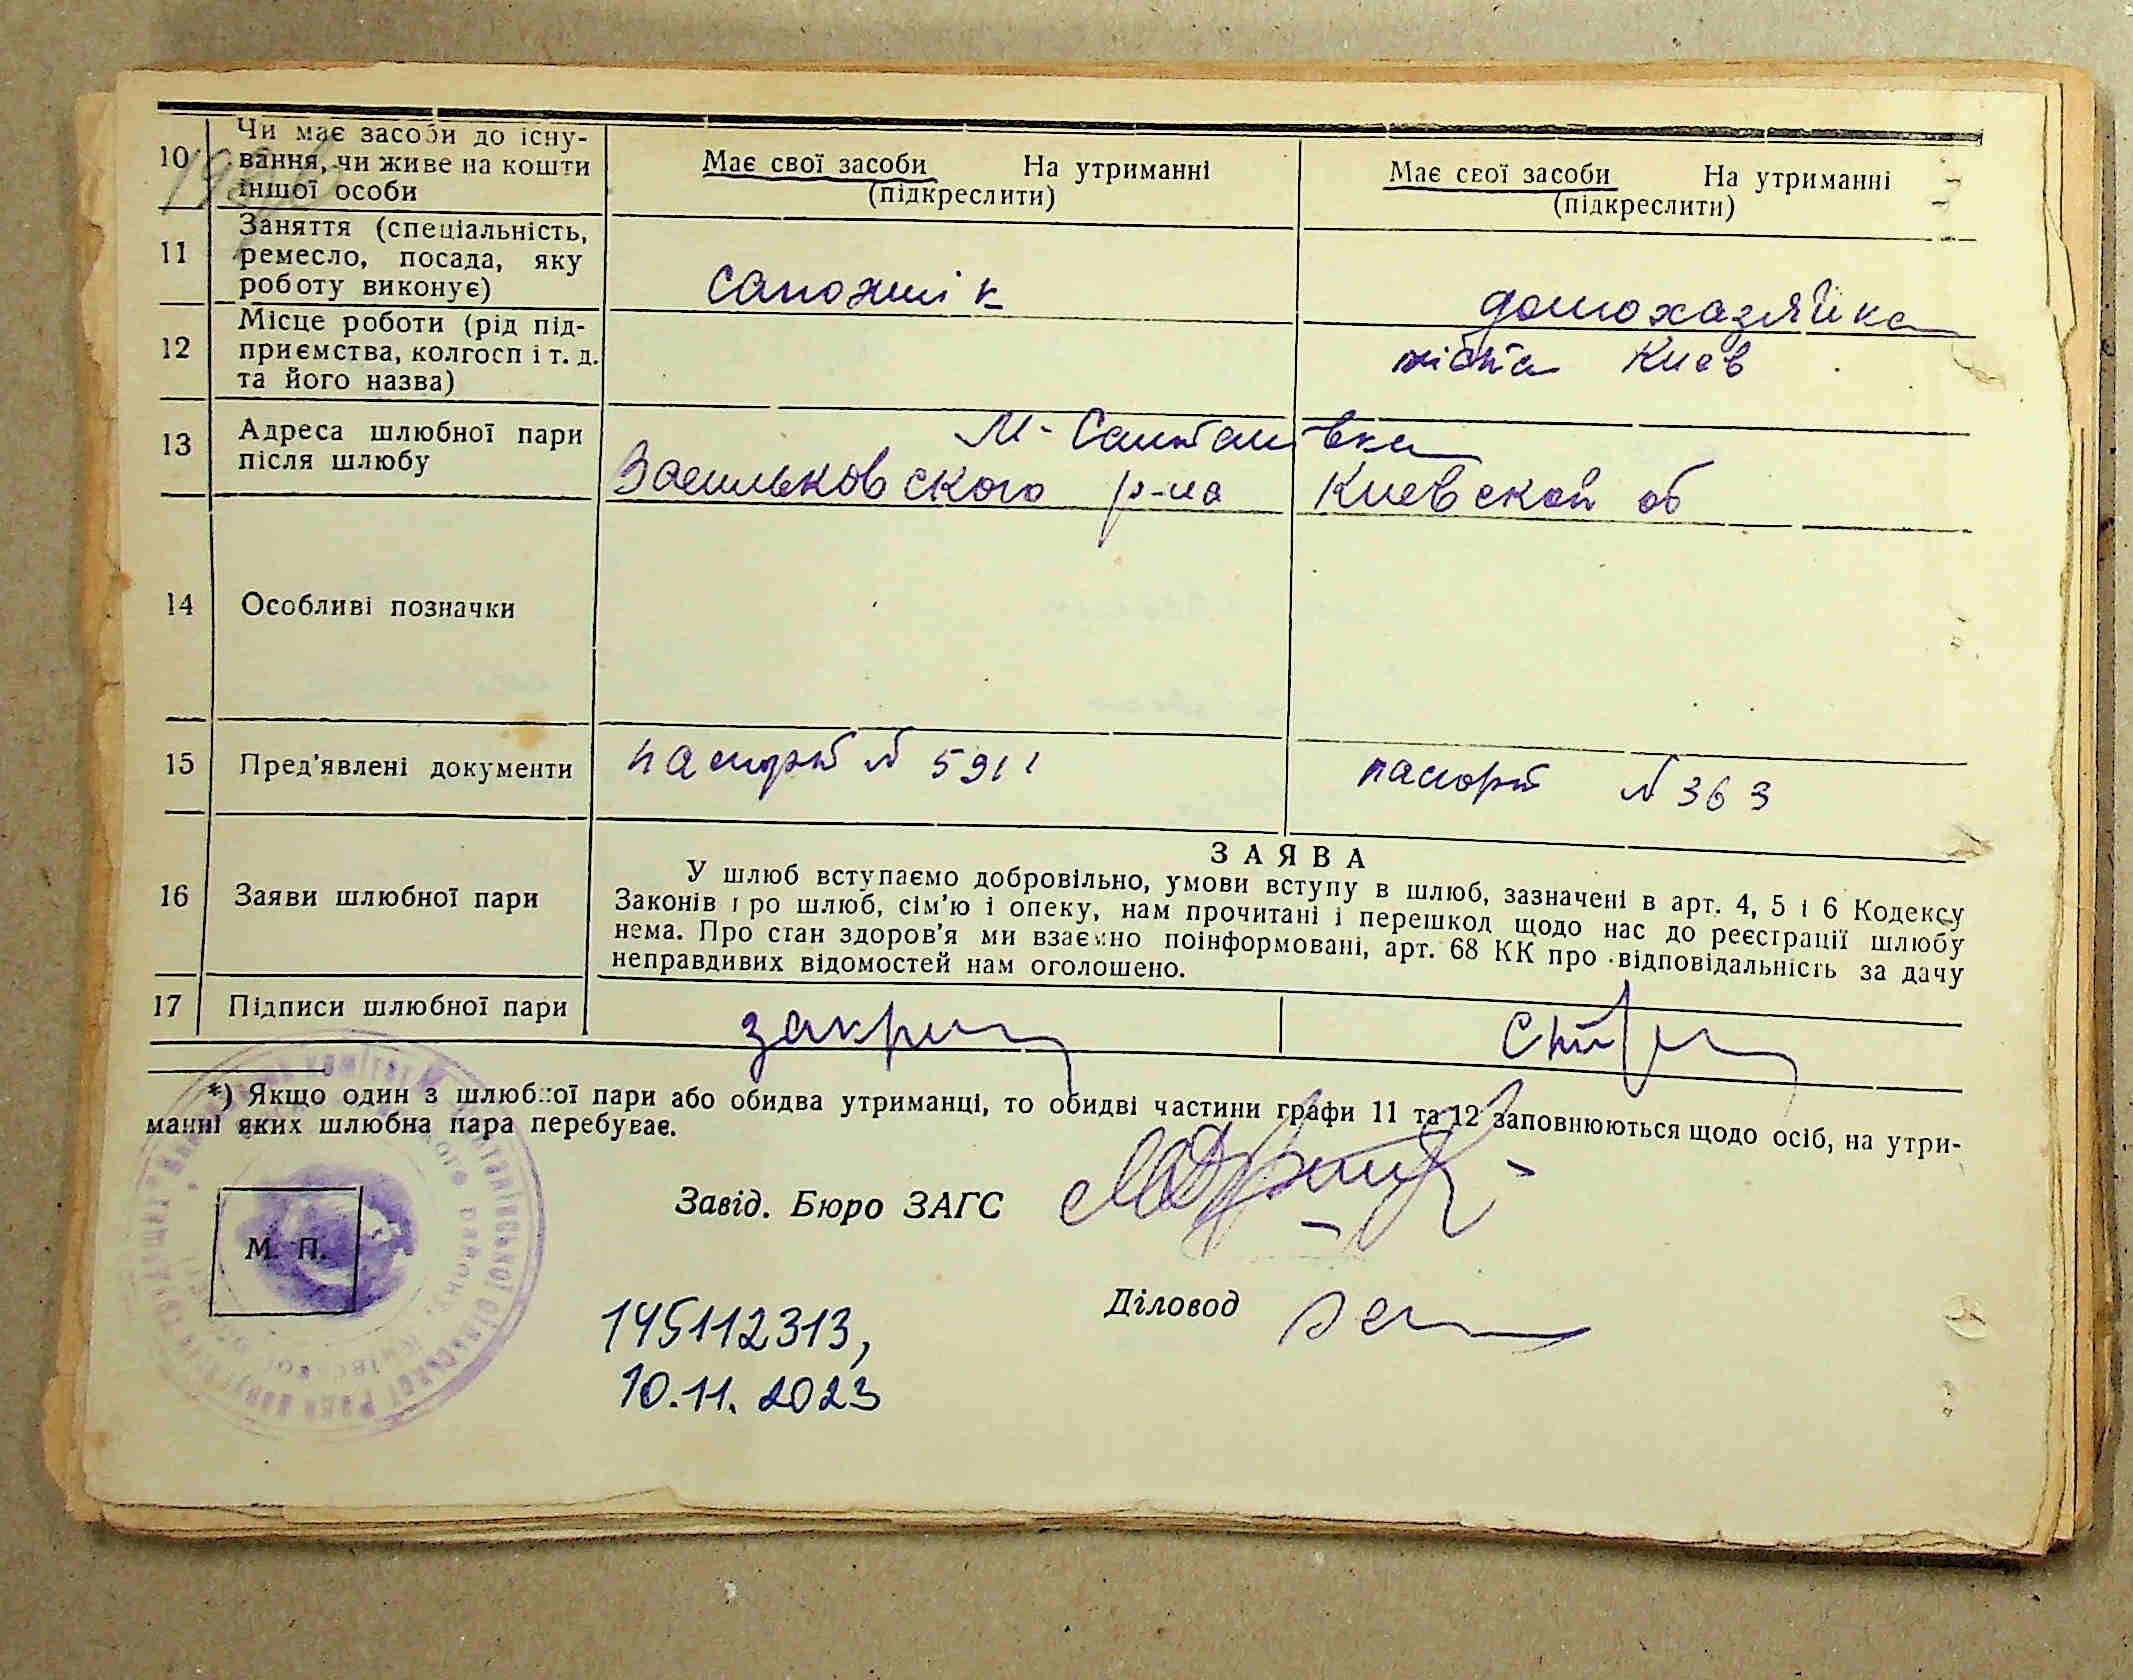 10 Чи має засоби до існу-
вання, чи живе на кошти
іншої особи
Має свої засоби На утриманні
(підкреслити)
Має свої засоби На утриманні
(підкреслити)
11 Заняття (спеціальність,
ремесло, посада, яку
роботу виконує)
сапожнік
домохазяйка
12 Місце роботи (рід під-
приємства, колгосп і т. д.
та його назва)
міста Киев
13 Адреса шлюбної пари
після шлюбу
М-Салтановка
Васильковского р-на Киевской об
14 Особливі позначки
15 Пред'явлені документи
паспорт № 5911
паспорт № 363
16 Заяви шлюбної пари
ЗАЯВА
У шлюб вступаємо добровільно, умови вступу в шлюб, зазначені в арт. 4, 5 і 6 Кодексу
Законів про шлюб, сім'ю і опеку, нам прочитані і перешкод щодо нас до реєстрації шлюбу
нема. Про стан здоров'я ми взаємно поінформовані, арт. 68 КК про відповідальність за дачу
неправдивих відомостей нам оголошено.
17 Підписи шлюбної пари
*) Якщо один з шлюбної пари або обидва утриманці, то обидві частини графи 11 та 12 заповнюються щодо осіб, на утри-
манні яких шлюбна пара перебуває.
Завід. Бюро ЗАГС
М. П.
Діловод
145112313,
10.11.2023